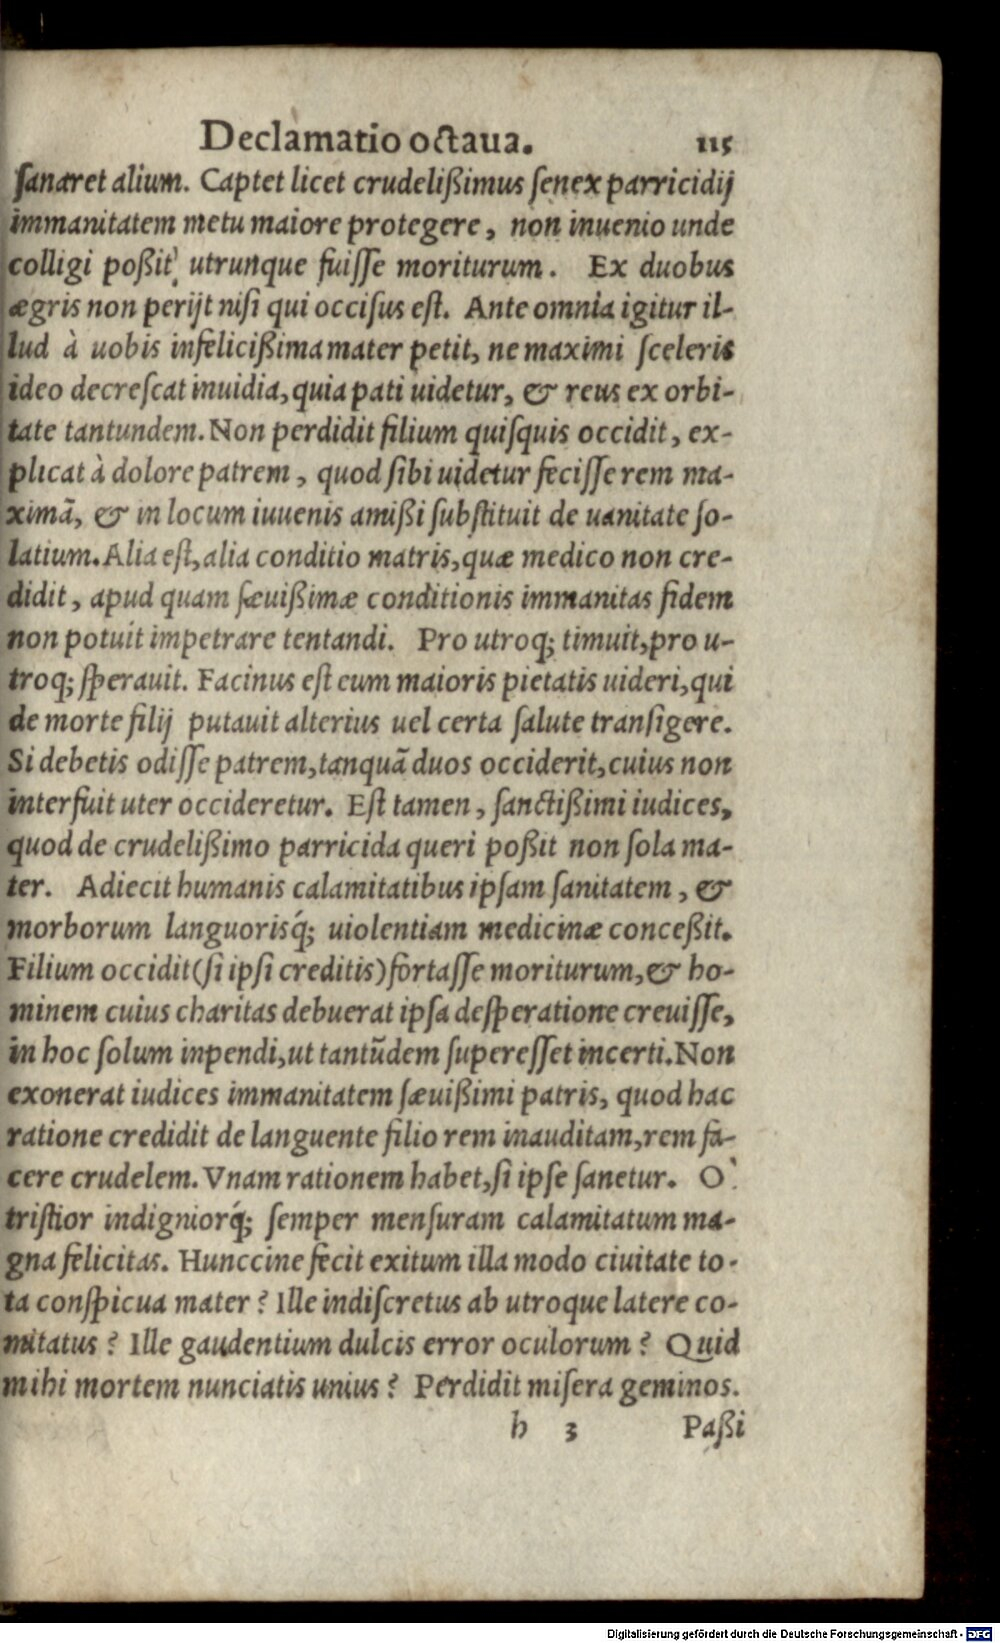 Declamatio octaua. 115
ſanaret alium. Captet licet crudelißimus ſenex parricidij
immanitatem metu maiore protegere, non inuenio unde
colligi poßit, utrunque fuiſſe moriturum. Ex duobus
ægris non perijt niſi qui occiſus eſt. Ante omnia igitur il-
lud à uobis infelicißima mater petit, ne maximi ſceleris
ideo decreſcat inuidia, quia pati uidetur, & reus ex orbi-
tate tantundem. Non perdidit filium quiſquis occidit, ex-
plicat à dolore patrem, quod ſibi uidetur feciſſe rem ma-
ximã, & in locum iuuenis amißi ſubſtituit de uanitate ſo-
latium. Alia eſt, alia conditio matris, quæ medico non cre-
didit, apud quam ſæuißimæ conditionis immanitas fidem
non potuit impetrare tentandi. Pro utroq; timuit, pro u-
troq; ſperauit. Facinus eſt eum maioris pietatis uideri, qui
de morte filij putauit alterius uel certa ſalute tranſigere.
Si debetis odiſſe patrem, tanquã duos occiderit, cuius non
interfuit uter occideretur. Eſt tamen, ſanctißimi iudices,
quod de crudelißimo parricida queri poßit non ſola ma-
ter. Adiecit humanis calamitatibus ipſam ſanitatem, &
morborum languorisq́; uiolentiam medicinæ conceßit.
Filium occidit (ſi ipſi creditis) fortaſſe moriturum, & ho-
minem cuius charitas debuerat ipſa deſperatione creuiſſe,
in hoc ſolum inpendi, ut tantũdem ſupereſſet incerti. Non
exonerat iudices immanitatem ſæuißimi patris, quod hac
ratione credidit de languente filio rem inauditam, rem fa-
cere crudelem. Vnam rationem habet, ſi ipſe ſanetur. O`
triſtior indigniorq́; ſemper menſuram calamitatum ma-
gna felicitas. Hunccine fecit exitum illa modo ciuitate to-
ta conſpicua mater? Ille indiſcretus ab utroque latere co-
mitatus? Ille gaudentium dulcis error oculorum? Quid
mihi mortem nunciatis unius? Perdidit miſera geminos.
h 3 Paßi
Digitalisierung gefördert durch die Deutsche Forschungsgemeinschaft - DFG